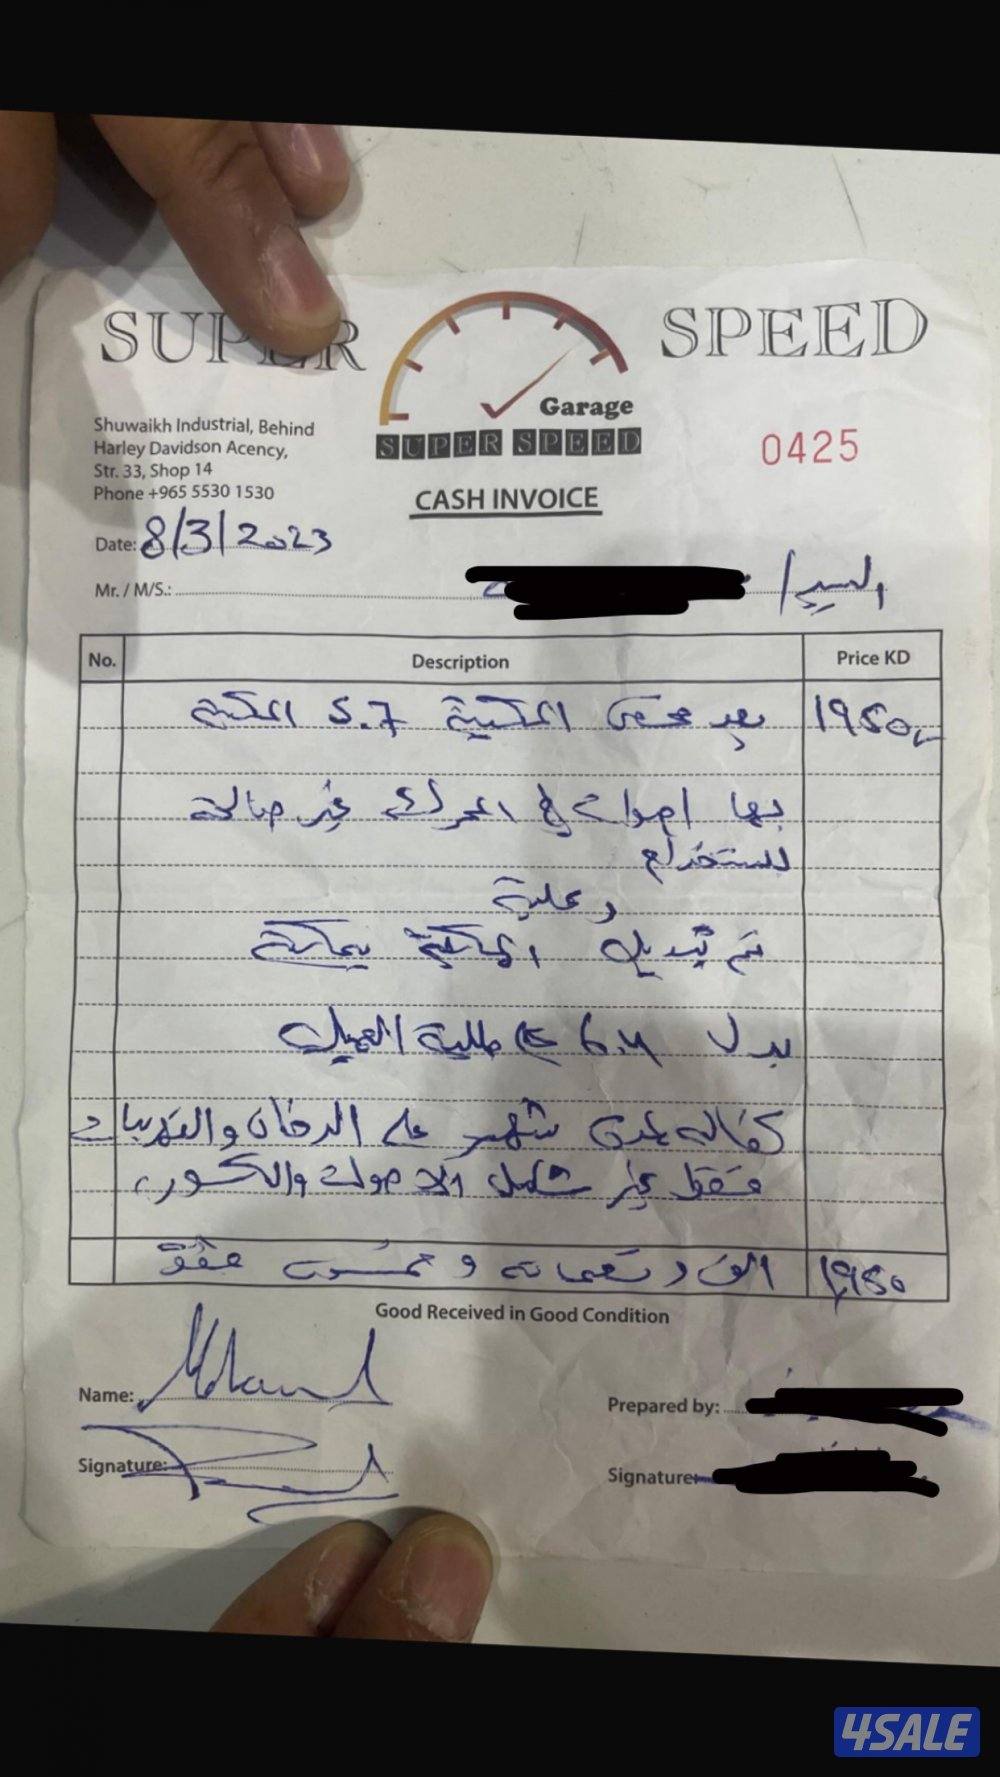 SUPER SPEED
Garage
SUPER SPEED
Shuwaikh Industrial, Behind
Harley Davidson Acency,
Str. 33, Shop 14
Phone +965 5530 1530
0425
CASH INVOICE
Date: 8/3/2023
Mr. / M/S.: السيد/
No. Description Price KD
بعد فحص المكينة 5.7 المكينة 1950
بها اصوات في المحرك غير صالحة
للستخدام
وعلية
تم تبديل المكينة بمكينة
بدل 6.4 طلبة العميل
كفاله شهر على الدخان والتهريبات
فقط غير شامل الاصوات والكسور
الف وتسعمائه وخمسون فقط 1950
Good Received in Good Condition
Name:
Prepared by:
Signature:
Signature:
4SALE